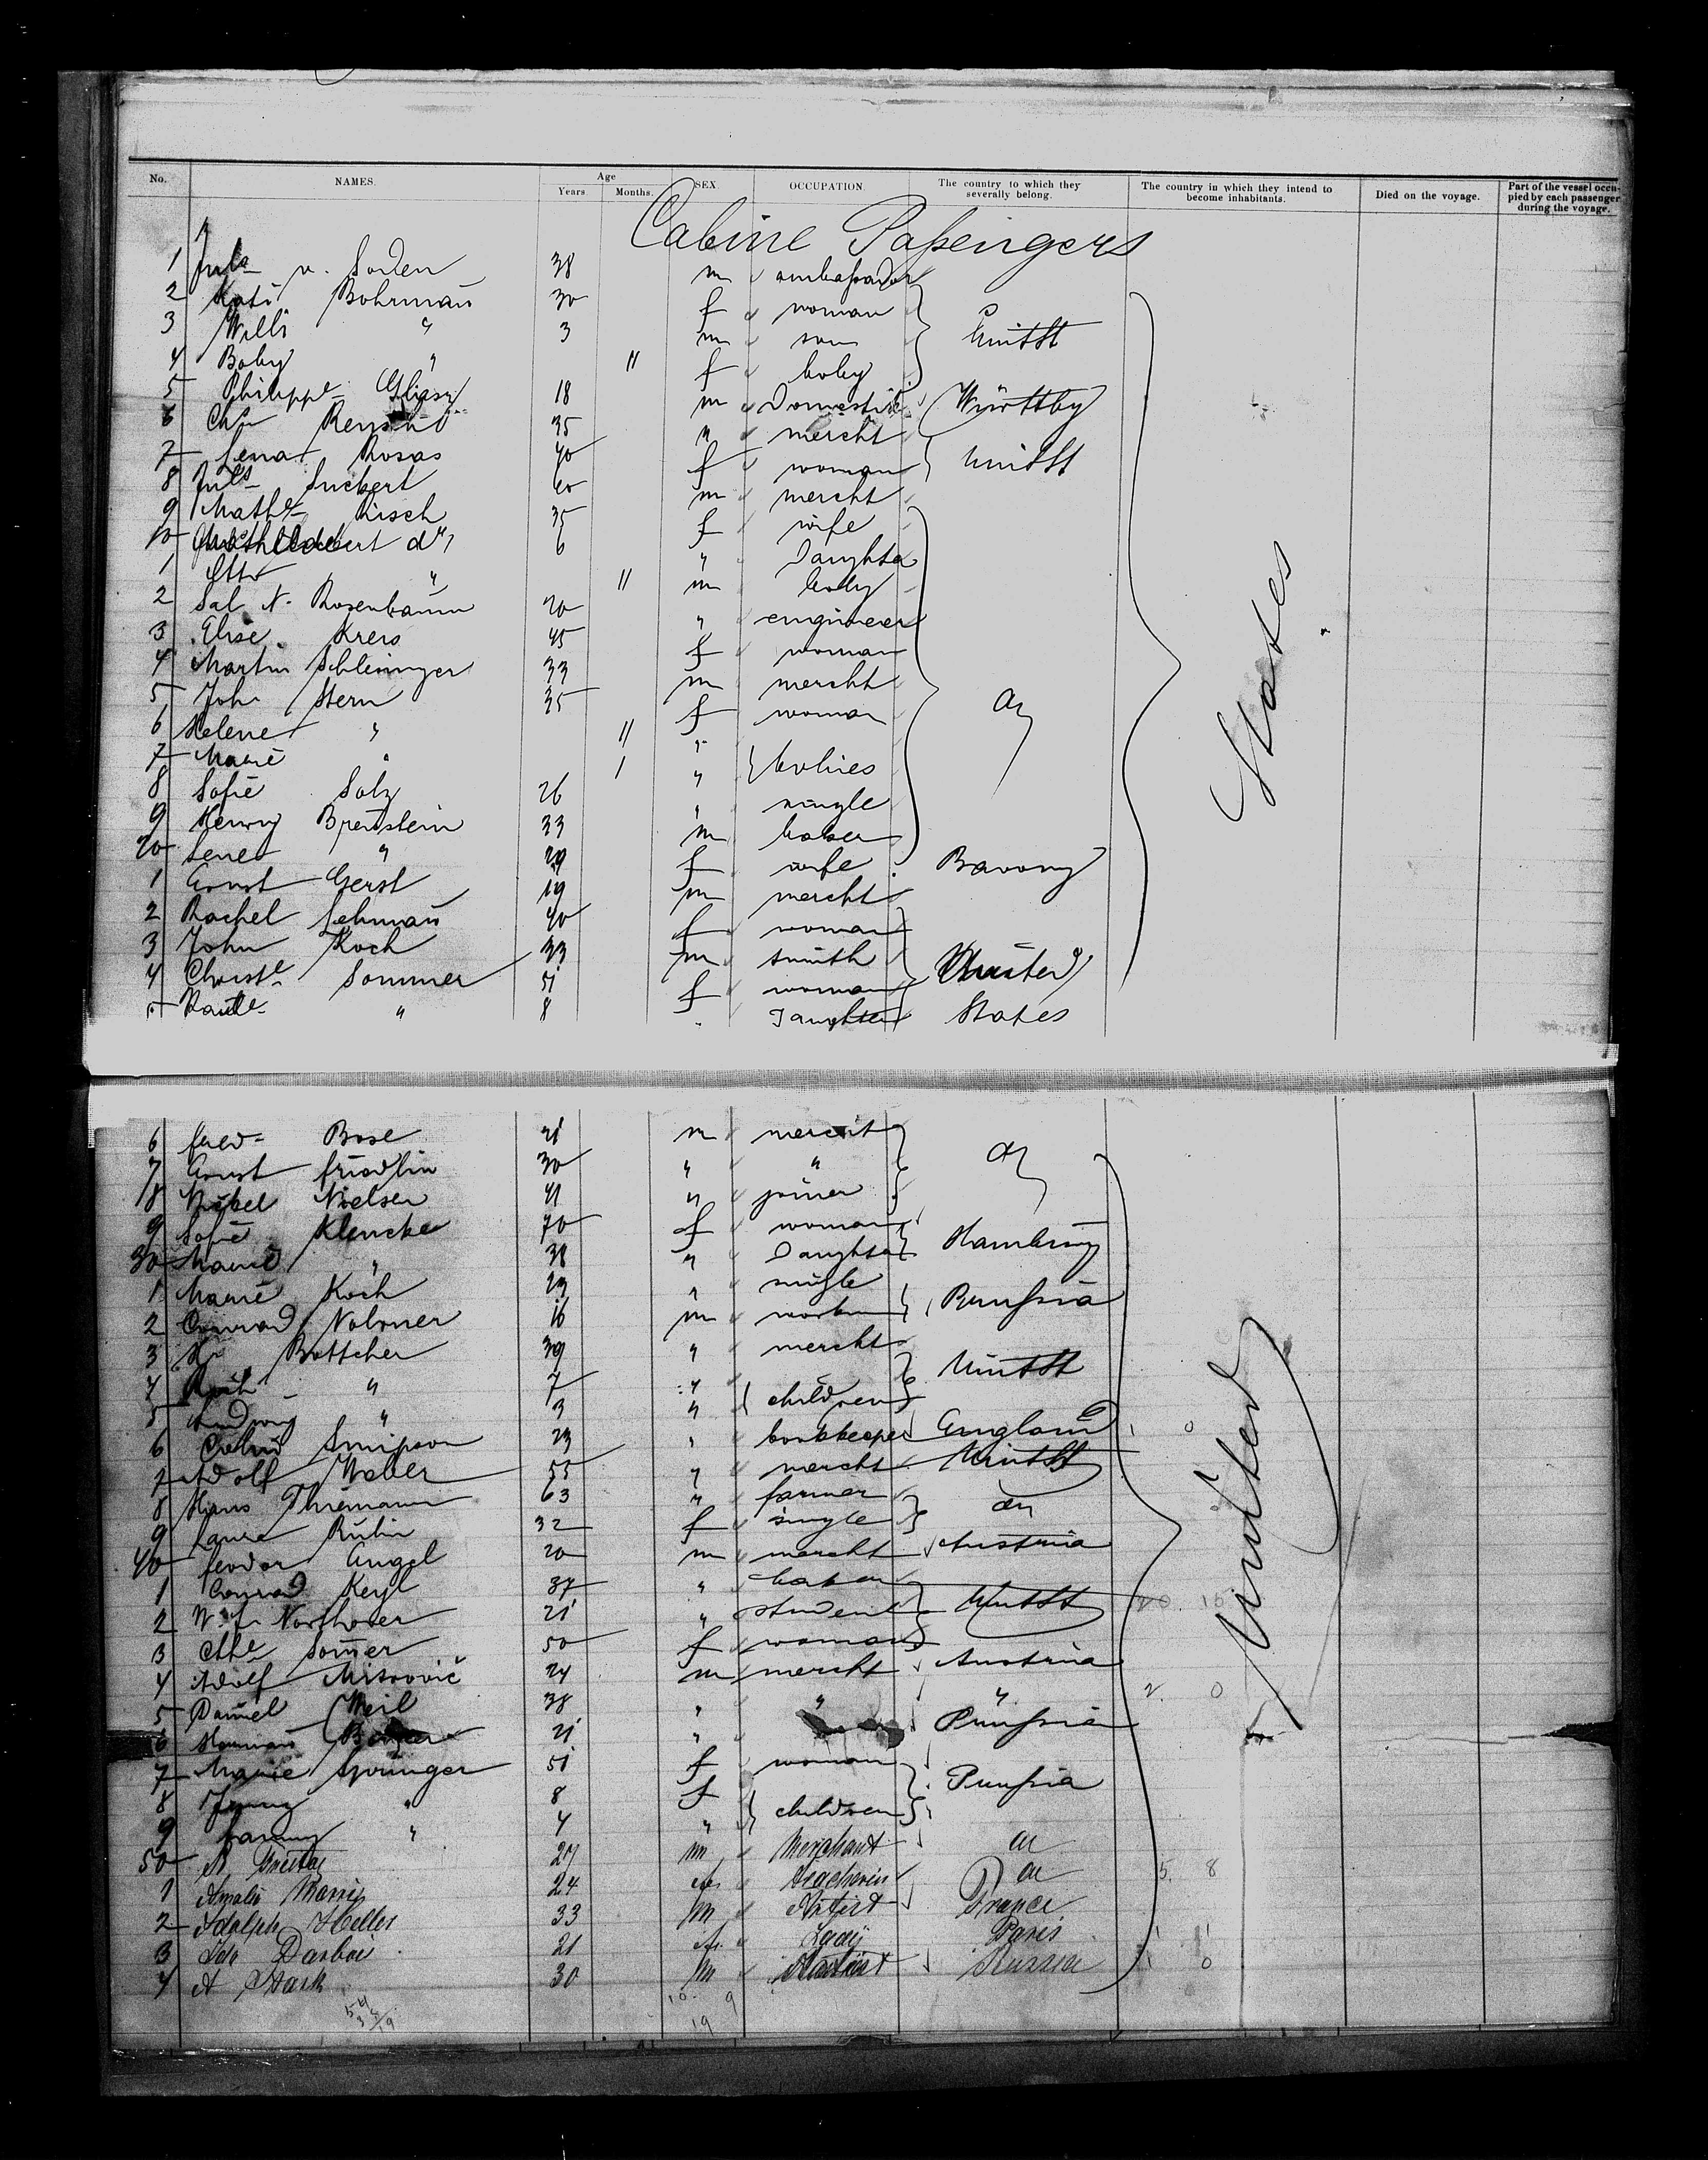 No. NAMES. Age Years Months. SEX. OCCUPATION. The country to which they severally belong. The country in which they intend to become inhabitants. Died on the voyage. Part of the vessel occupied by each passenger during the voyage.
Cabine Passengers
1 Juls v. Soden 38 m ambassador
2 Kati Bohrman 30 f woman
3 Willi " 3 m son UnitSt
4 Baby " 11 f baby
5 Philippe 18 m Domestik Württbg
6 Chr 35 " mercht
7 Lena Rosas 40 f woman UnitSt
8 Juls Suckert 60 m mercht
9 Mathe Kisch 35 f wife
10 6 " Daughter
1 Otto " 11 m baby
2 Sal. N. Rosenbaum 20 " engineer
3 Elise Kreis 45 f woman
4 Martin Schlesinger 33 m mercht
5 Joh Stern 35 f woman
6 Helene " 11 "
7 Marie " 1 " babies
8 Sofie Salz 26 " single
9 Henry Bernstein 33 m baker
20 Lene " 29 f wife Bavony
1 Ernst Gerst 19 m mercht
2 Rachel Lehman 40 f woman
3 John Koch 33 m smith United
4 Christe Sommer 51 f woman
5 " 8 " Daughter States
States
6 fred Bose 21 m mercht
7 Ernst friedlin 30 " "
8 Nielsen 41 " joiner
9 Sofie Klencke 70 f woman
30 Marie " 38 " Daughter Hamburg
1 Marie Koch 23 " single
2 Conrad 16 m Prussia
3 Hr Bottcher 39 " mercht
4 " 7 " UnitSt
5 Ludwig " 3 " children
6 Simpson 23 " bookkeeper England
7 Adolf Weber 55 " mercht UnitSt
8 Hans Thiemann 63 " farmer
9 Laura Rubin 32 f single
40 feodor Angel 20 m mercht Austria
1 Conrad Keyl 37 " baker
2 21 " student UnitSt
3 Sommer 50 f woman
4 Adolf Mitrovič 24 m mercht Austria
5 Daniel Weil 38 " " "
6 Herman 21 " Prussia
7 Marie Springer 51 f woman
8 Jenny " 8 f Prussia
9 fanny " 4 " children
50 27 m Merchant
1 Amalie 24
2 Adolph Heller 33 m Artist France
3 Darboi 21 Lady Paris
4 A Stark 30 m Russia
United